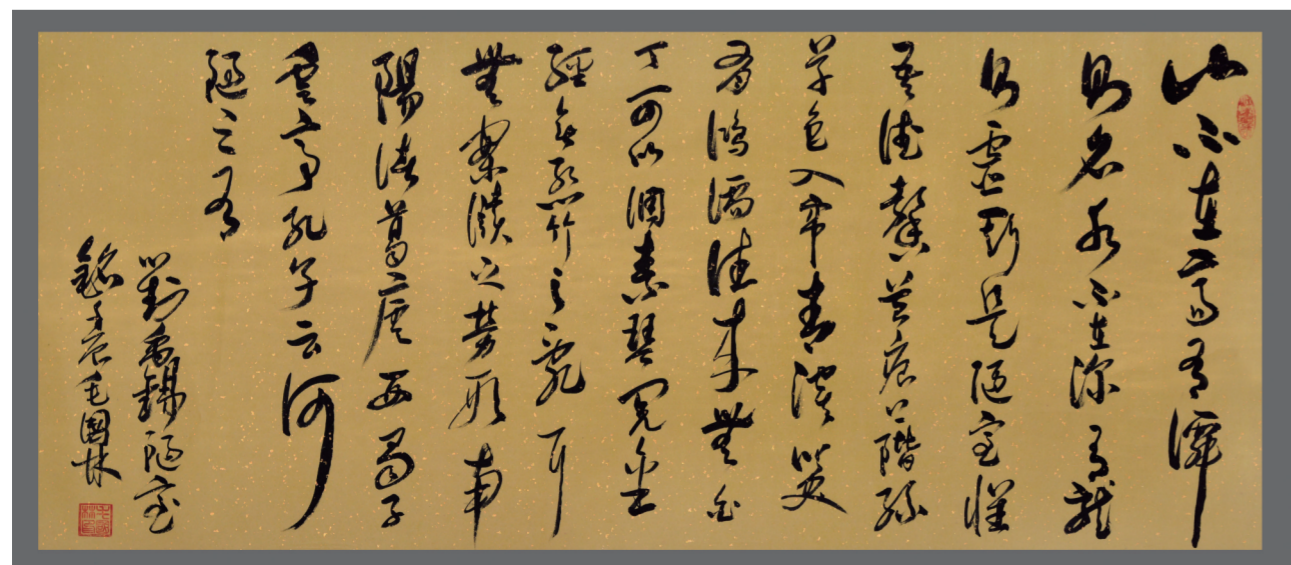 山不在高有僊
則名水不在深有龍
則靈斯是陋室惟
吾德馨苔痕上階綠
草色入帘青談笑
有鴻儒往來無白
丁可以調素琴閱金
經無絲竹之亂耳
無案牘之勞形南
陽諸葛廬西蜀子
雲亭孔子云何
陋之有
劉禹錫陋室
銘壬辰毛國林